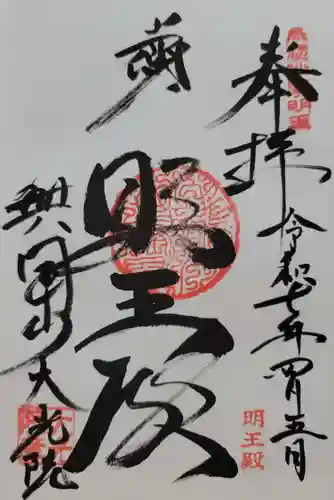 奉拝
令和七年四月五日
明王殿
明王殿
興国山大光院